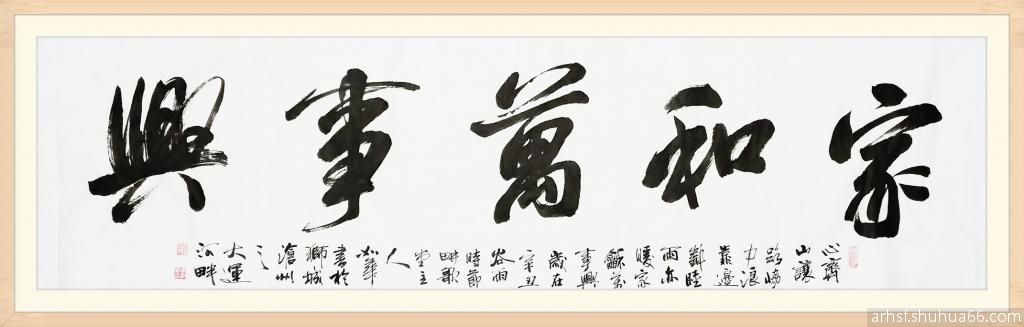 家和萬事興
心齊
山讓
路協
力浪
靠邊
鄰睦
雨亦
暖家
龢萬
事興
歲在
辛丑
谷雨
時節
畊歌
堂主
人
華
書於
獅城
滄州
之
大運
河畔
arhsf.shuhua66.com